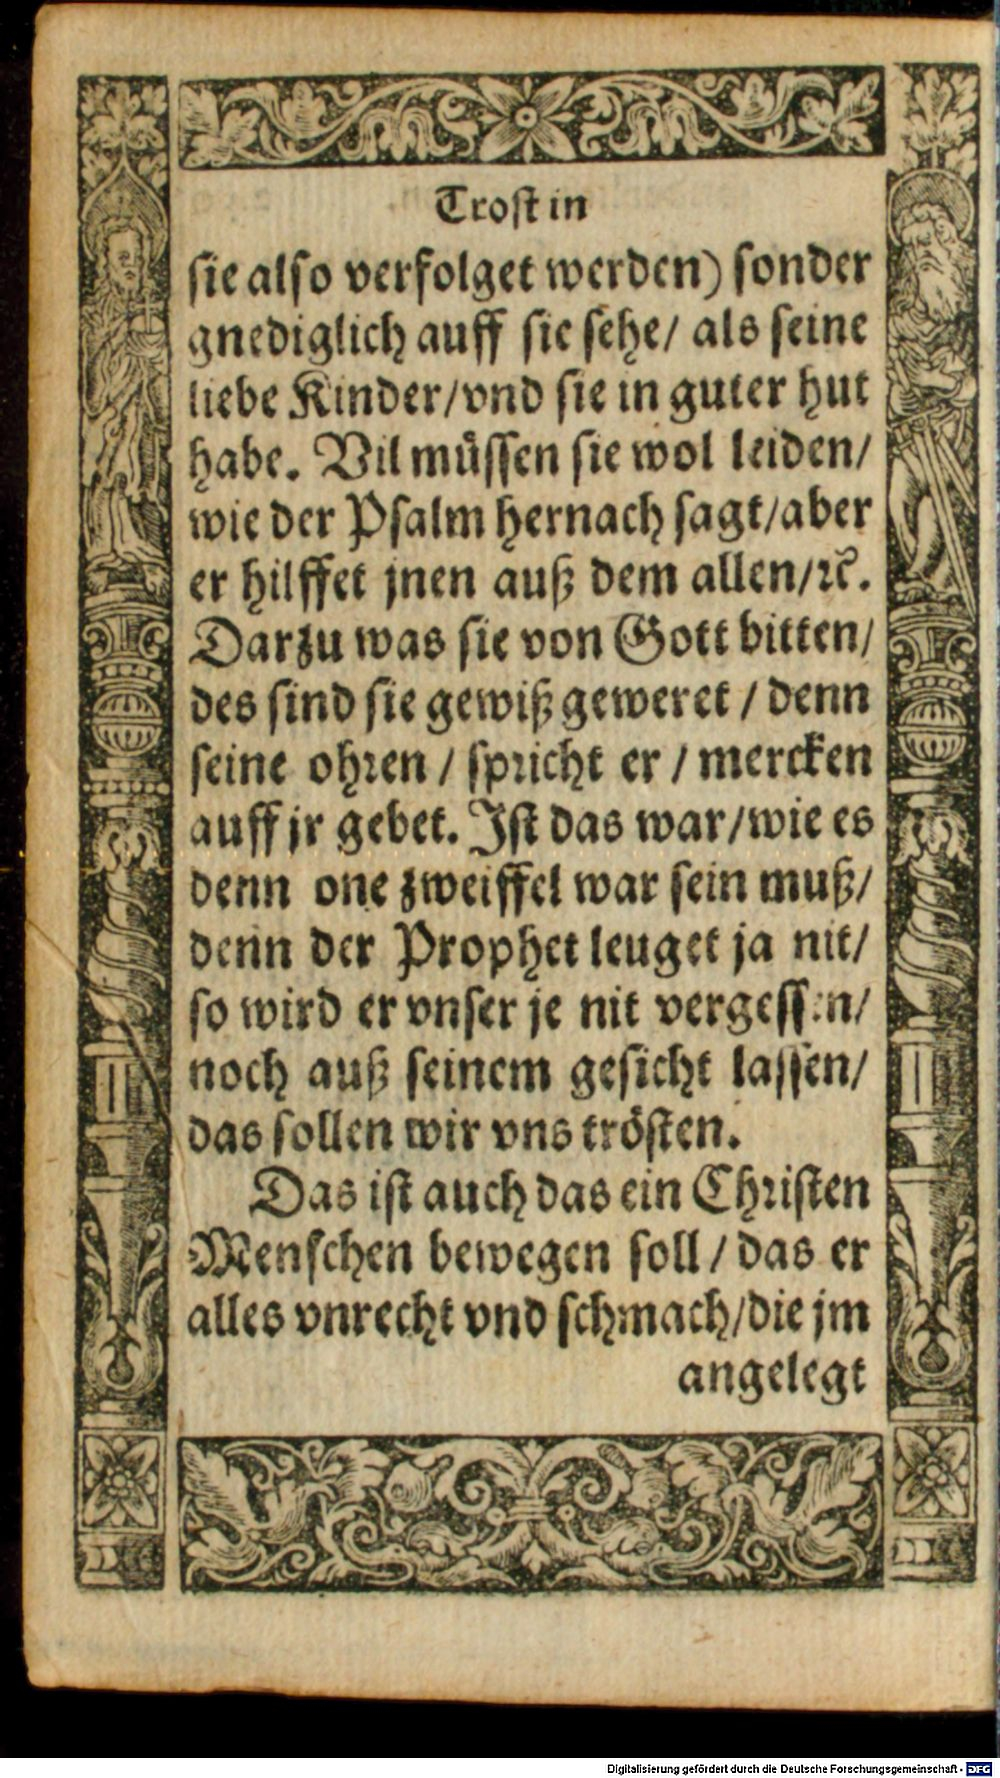 Trost in
sie also verfolget werden) sonder
gnediglich auff sie sehe/ als seine
liebe Kinder/vnd sie in guter hut
habe. Vil müssen sie wol leiden/
wie der Psalm hernach sagt/aber
er hilffet jnen auß dem allen/ꝛc̃.
Darzu was sie von Gott bitten/
des sind sie gewiß geweret / denn
seine ohren / spricht er / mercken
auff jr gebet. Ist das war/wie es
denn one zweiffel war sein muß/
denn der Prophet leuget ja nit/
so wird er vnser je nit vergessen/
noch auß seinem gesicht lassen/
das sollen wir vns trösten.
Das ist auch das ein Christen
Menschen bewegen soll / das er
alles vnrecht vnd schmach/die jm
angelegt
Digitalisierung gefördert durch die Deutsche Forschungsgemeinschaft - DFG